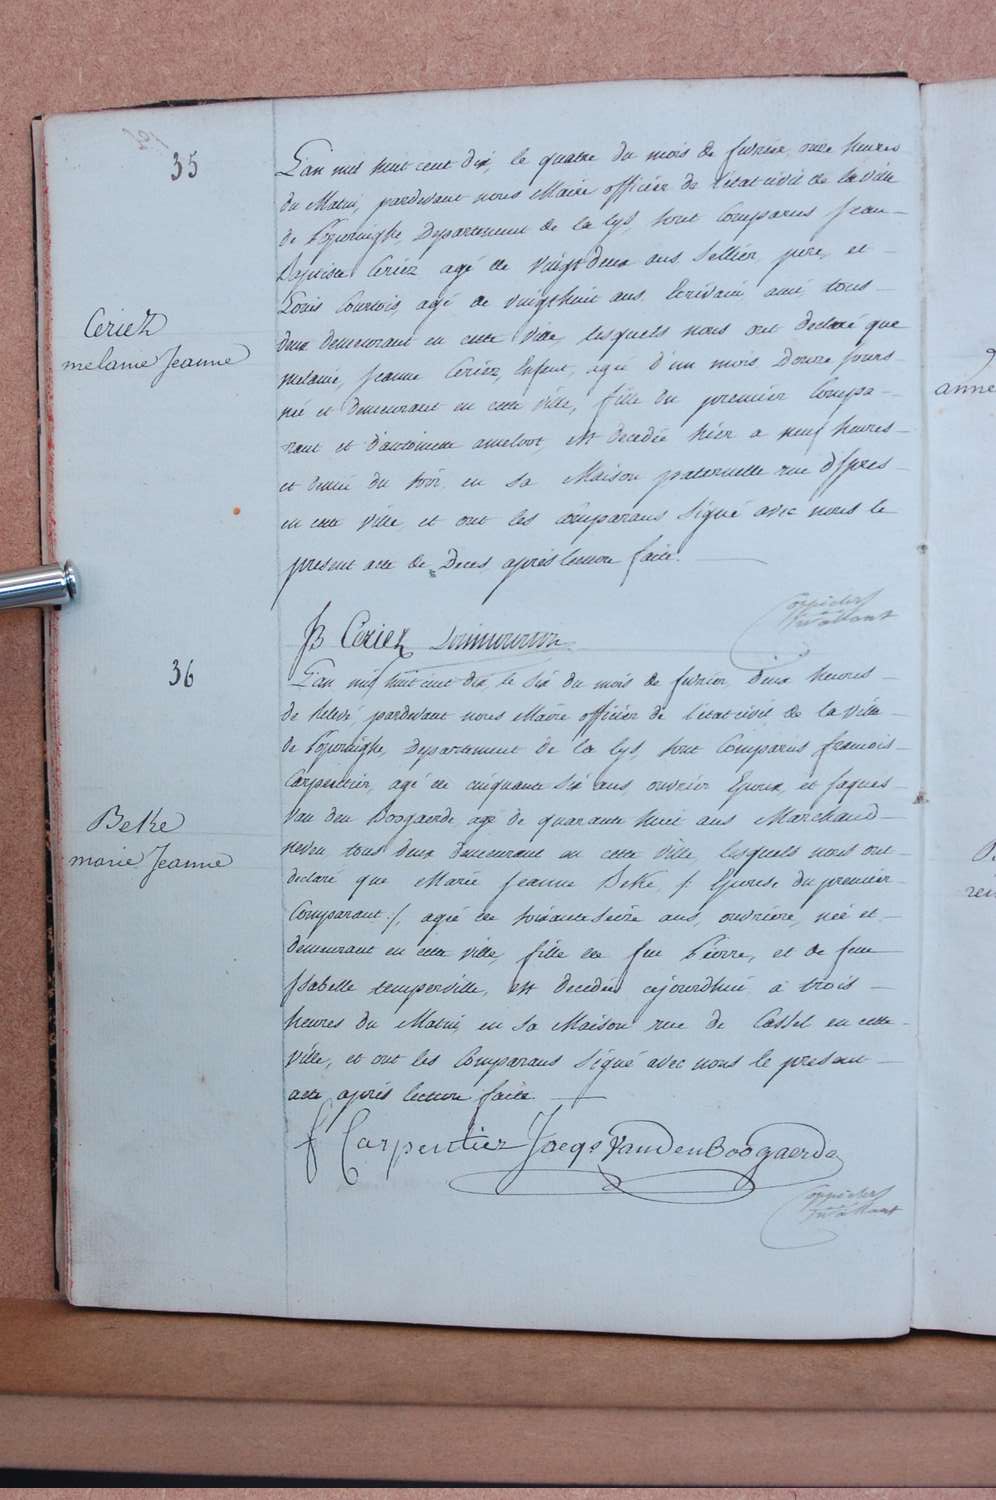 35
L'an mil huit cent dix, le quatre du mois de fevrier, onze heures
du Matin, pardevant nous Maire officier de l'etat civil de la ville
de Poperinghe, Departement de la Lys, sont Comparus Jean-
Baptiste Ceriez agé de vingt deux ans Sellier, pere, et -
Louis Courtois, agé de vingthuit ans, Ecrivain, ami, tous -
deux demeurant en cette ville, lesquels nous ont declaré que
melanie, Jeanne Ceriez, Enfant, agée d'un mois Douze jours -
née et demeurant en cette ville, fille du premier Compa-
rant et d'antoinette ameloot, est decedée hier a neuf heures -
et demie du soir, en sa Maison paternelle rue d'Ypres -
en cette ville, et ont les comparans Signé avec nous le
present acte de Deces, après lecture faite. -
Ceriez
melanie Jeanne
JB Ceriez
36
L'an mil huit cent dix, le six du mois de fevrier, deux heures -
de relevé, pardevant nous Maire officier de l'etat civil de la ville -
de Poperinghe, Departement de la Lys, sont Comparus francois -
Carpentier, agé de cinquante six ans, ouvrier Epoux, et Jaques -
Van den Boogaerde, agé de quarante huit ans Marchand -
neveu, tous deux demeurant en cette ville, lesquels nous ont
declaré que Marie Jeanne Beke, /: Epouse du premier
Comparant :/, agée de soixante seize ans, ouvriere, née et -
demeurant en cette ville, fille de feu Pierre, et de feue
Isabelle temperville, est decedée cejourdhui à trois -
heures du Matin, en sa Maison rue de Cassel en cette -
ville, et ont les Comparans Signé avec nous le present -
acte après lecture faite. -
Beke
marie Jeanne
f Carpentier Jaeqs VandenBoogaerde
anne